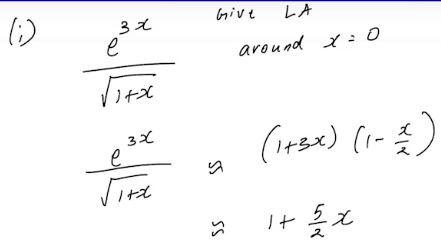 (i) e^{3x} / √(1+x) Give LA
around x = 0
e^{3x} / √(1+x) ≈ (1+3x) (1 - x/2)
≈ 1 + 5/2 x